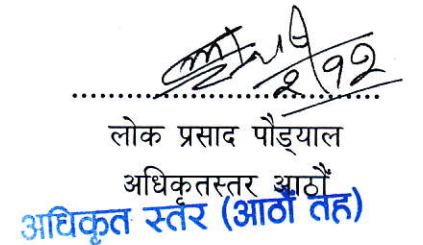 २/१२
...............................................
लोक प्रसाद पौड्याल
अधिकृतस्तर आठौं
अधिकृत स्तर (आठौं तह)